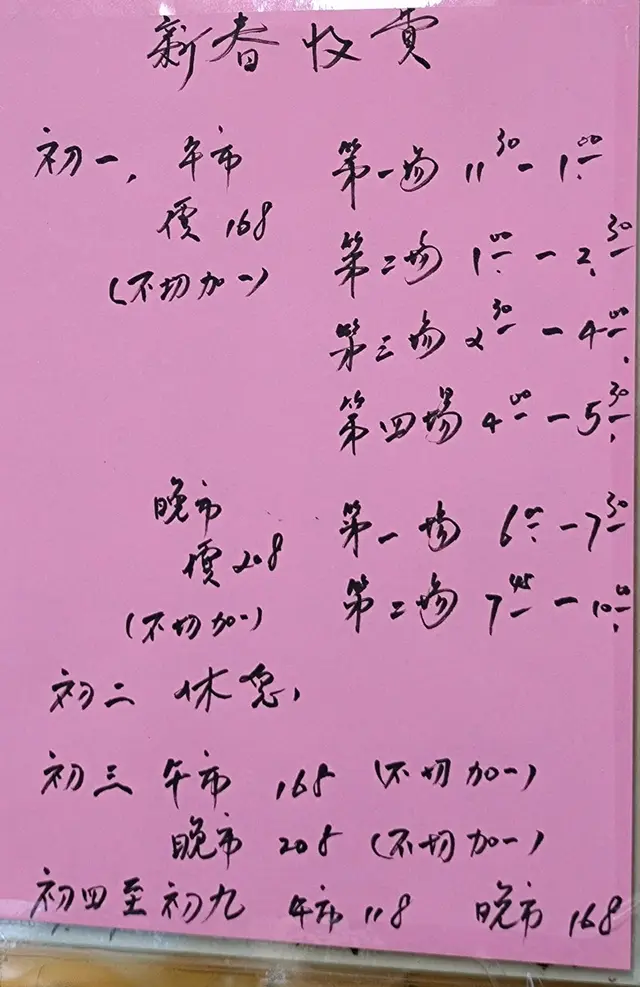 新春收費
初一, 午市 第一場 11³⁰ - 1⁰⁰
價 168 第二場 1⁰⁰ - 2³⁰
(不切加一)
第三場 2³⁰ - 4⁰⁰
第四場 4⁰⁰ - 5³⁰
晚市 第一場 6⁰⁰ - 7³⁰
價 208
(不切加一) 第二場 7⁴⁵ - 10⁰⁰
初二 休息,
初三 午市 168 (不切加一)
晚市 208 (不切加一)
初四至初九 午市 118 晚市 168